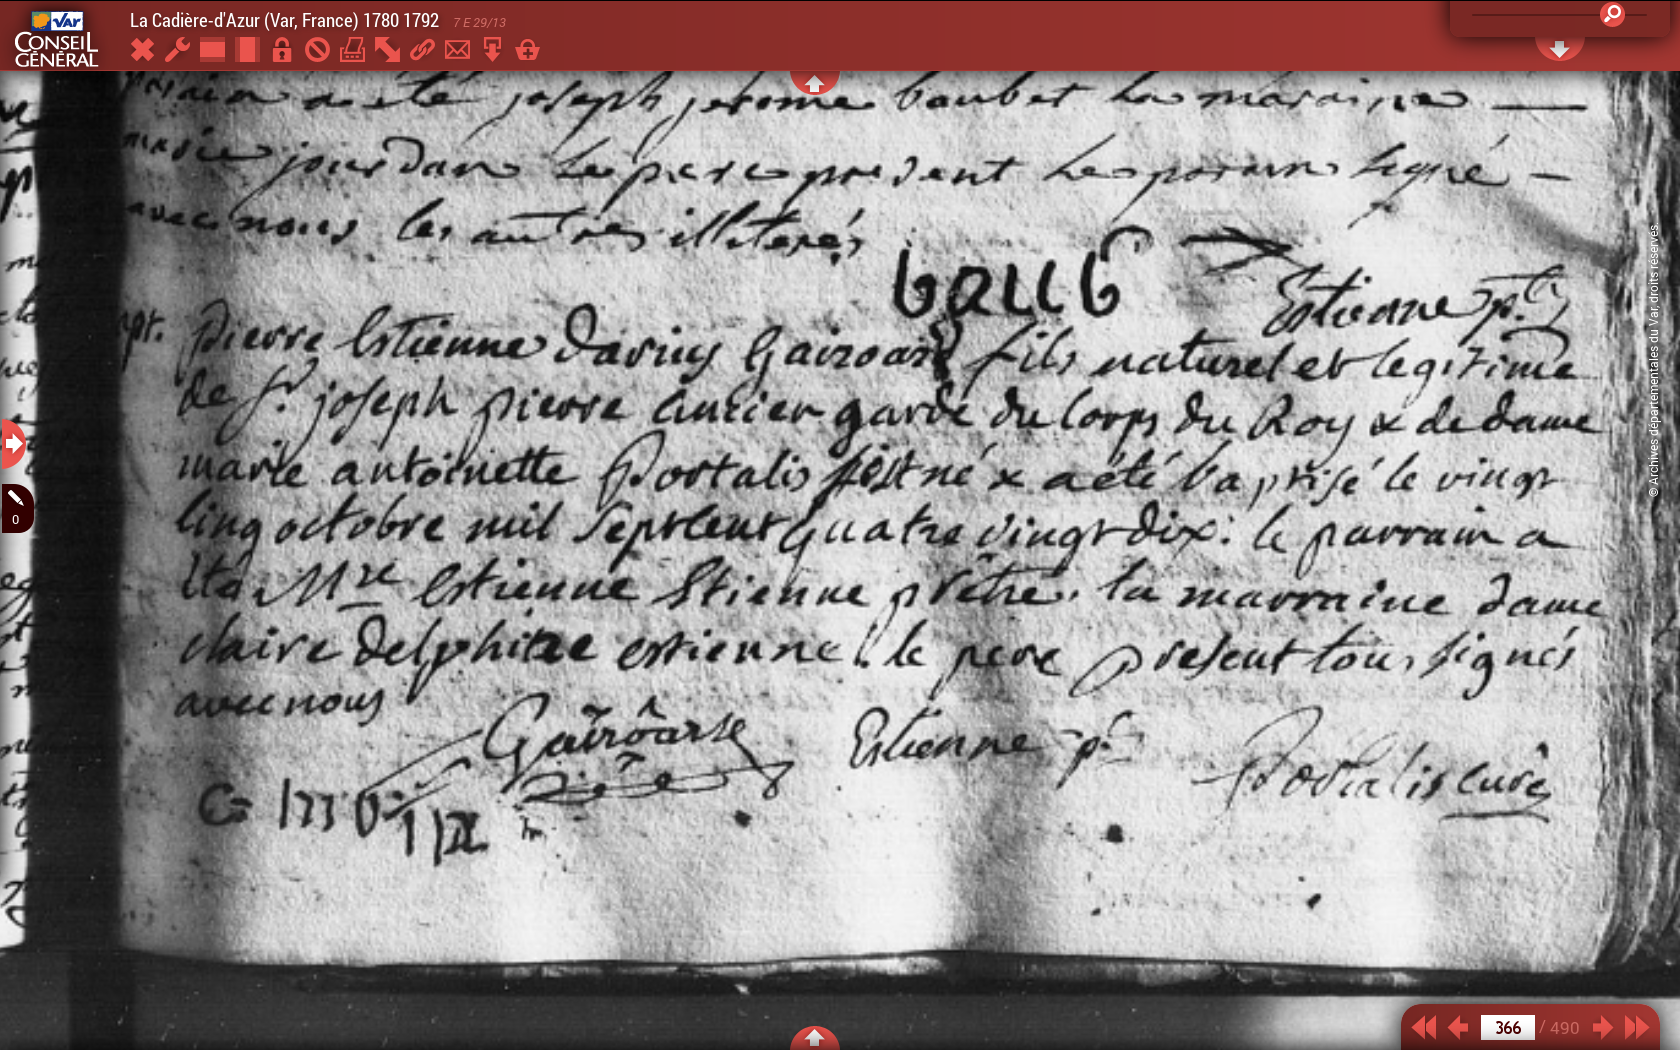 La Cadière-d'Azur (Var, France) 1780 1792 7 E 29/13
VAR
CONSEIL
GÉNÉRAL
a été joseph jerome baubet la maraine
marie jourdan le pere present le parain signé
avec nous les autres illiterés
Estienne p.tre
pt. pierre Estienne Darius Gairoard fils naturel et legitime
de Sr. joseph pierre ancien garde du Corps du Roy & de dame
marie antoinette Portalis est né & a été baptisé le vingt
cinq octobre mil Sept cent quatre vingt dix: le parrain a
été Mre Estienne Estienne prêtre. la marraine dame
claire delphine estienne. le pere present tous signés
avec nous
Gairoard Estienne p.tre Portalis curé
© Archives départementales du Var, droits réservés
0
366 / 490